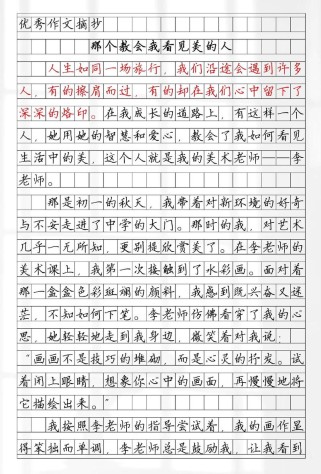 优秀作文摘抄
那个教会我看见美的人
人生如同一场旅行，我们沿途会遇到许多
人，有的擦肩而过，有的却在我们心中留下了
深深的烙印。在我成长的道路上，有这样一个
人，她用她的智慧和爱心，教会了我如何看见
生活中的美，这个人就是我的美术老师——李
老师。
那是初一的秋天，我带着对新环境的好奇
与不安走进了中学的大门。那时的我，对艺术
几乎一无所知，更别提欣赏美了。在李老师的
美术课上，我第一次接触到了水彩画。面对着
那一盒盒色彩斑斓的颜料，我感到既兴奋又迷
茫，不知如何下笔。李老师仿佛看穿了我的心
思，她轻轻地走到我身边，微笑着对我说：
“画画不是技巧的堆砌，而是心灵的抒发。试
着闭上眼睛，想象你心中的画面，再慢慢地将
它描绘出来。”
我按照李老师的指导尝试着，我的画作显
得笨拙而单调，李老师总是鼓励我，让我看到